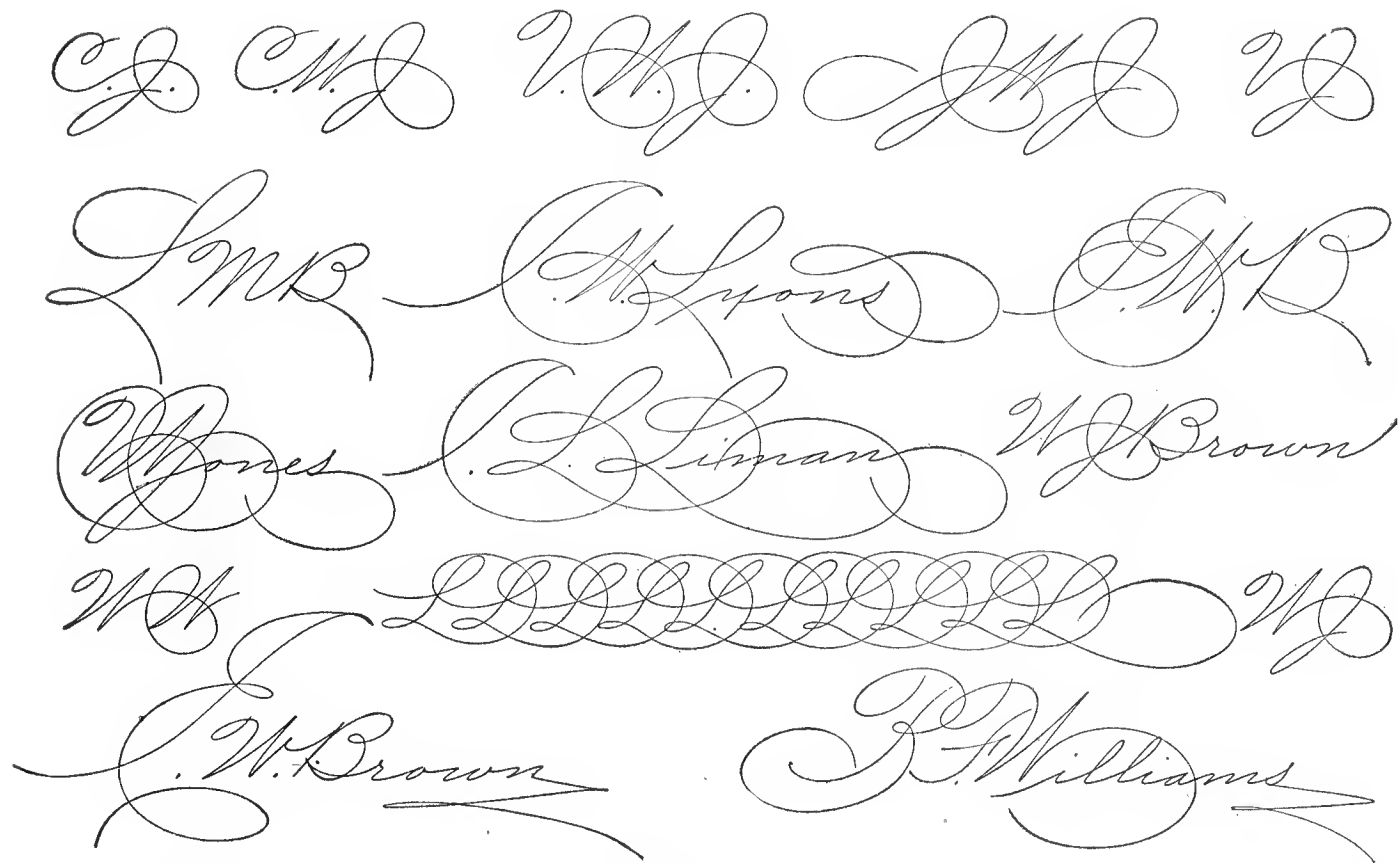 C. J. C. W. J. V. W. J. J W J V J
L M B I. W. Lyons E. W. B
W J Jones I. L. Liman W J Brown
W W L L L L L L L L L L W J
E. W. Brown P. F. Williams